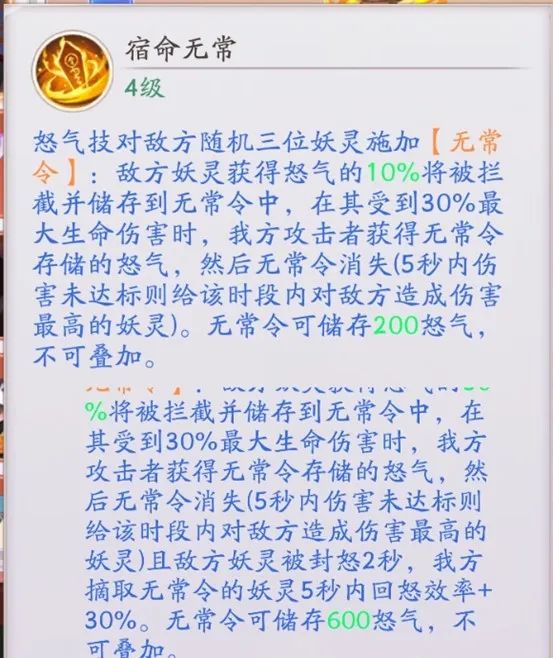 宿命无常
4级
怒气技对敌方随机三位妖灵施加【无常
令】：敌方妖灵获得怒气的10%将被拦
截并储存到无常令中，在其受到30%最
大生命伤害时，我方攻击者获得无常令
存储的怒气，然后无常令消失(5秒内伤
害未达标则给该时段内对敌方造成伤害
最高的妖灵)。无常令可储存200怒气，
不可叠加。
无常令】：敌方妖灵获得怒气的30
%将被拦截并储存到无常令中，在
其受到30%最大生命伤害时，我方
攻击者获得无常令存储的怒气，然
后无常令消失(5秒内伤害未达标则
给该时段内对敌方造成伤害最高的
妖灵)且敌方妖灵被封怒2秒，我方
摘取无常令的妖灵5秒内回怒效率+
30%。无常令可储存600怒气，不
可叠加。